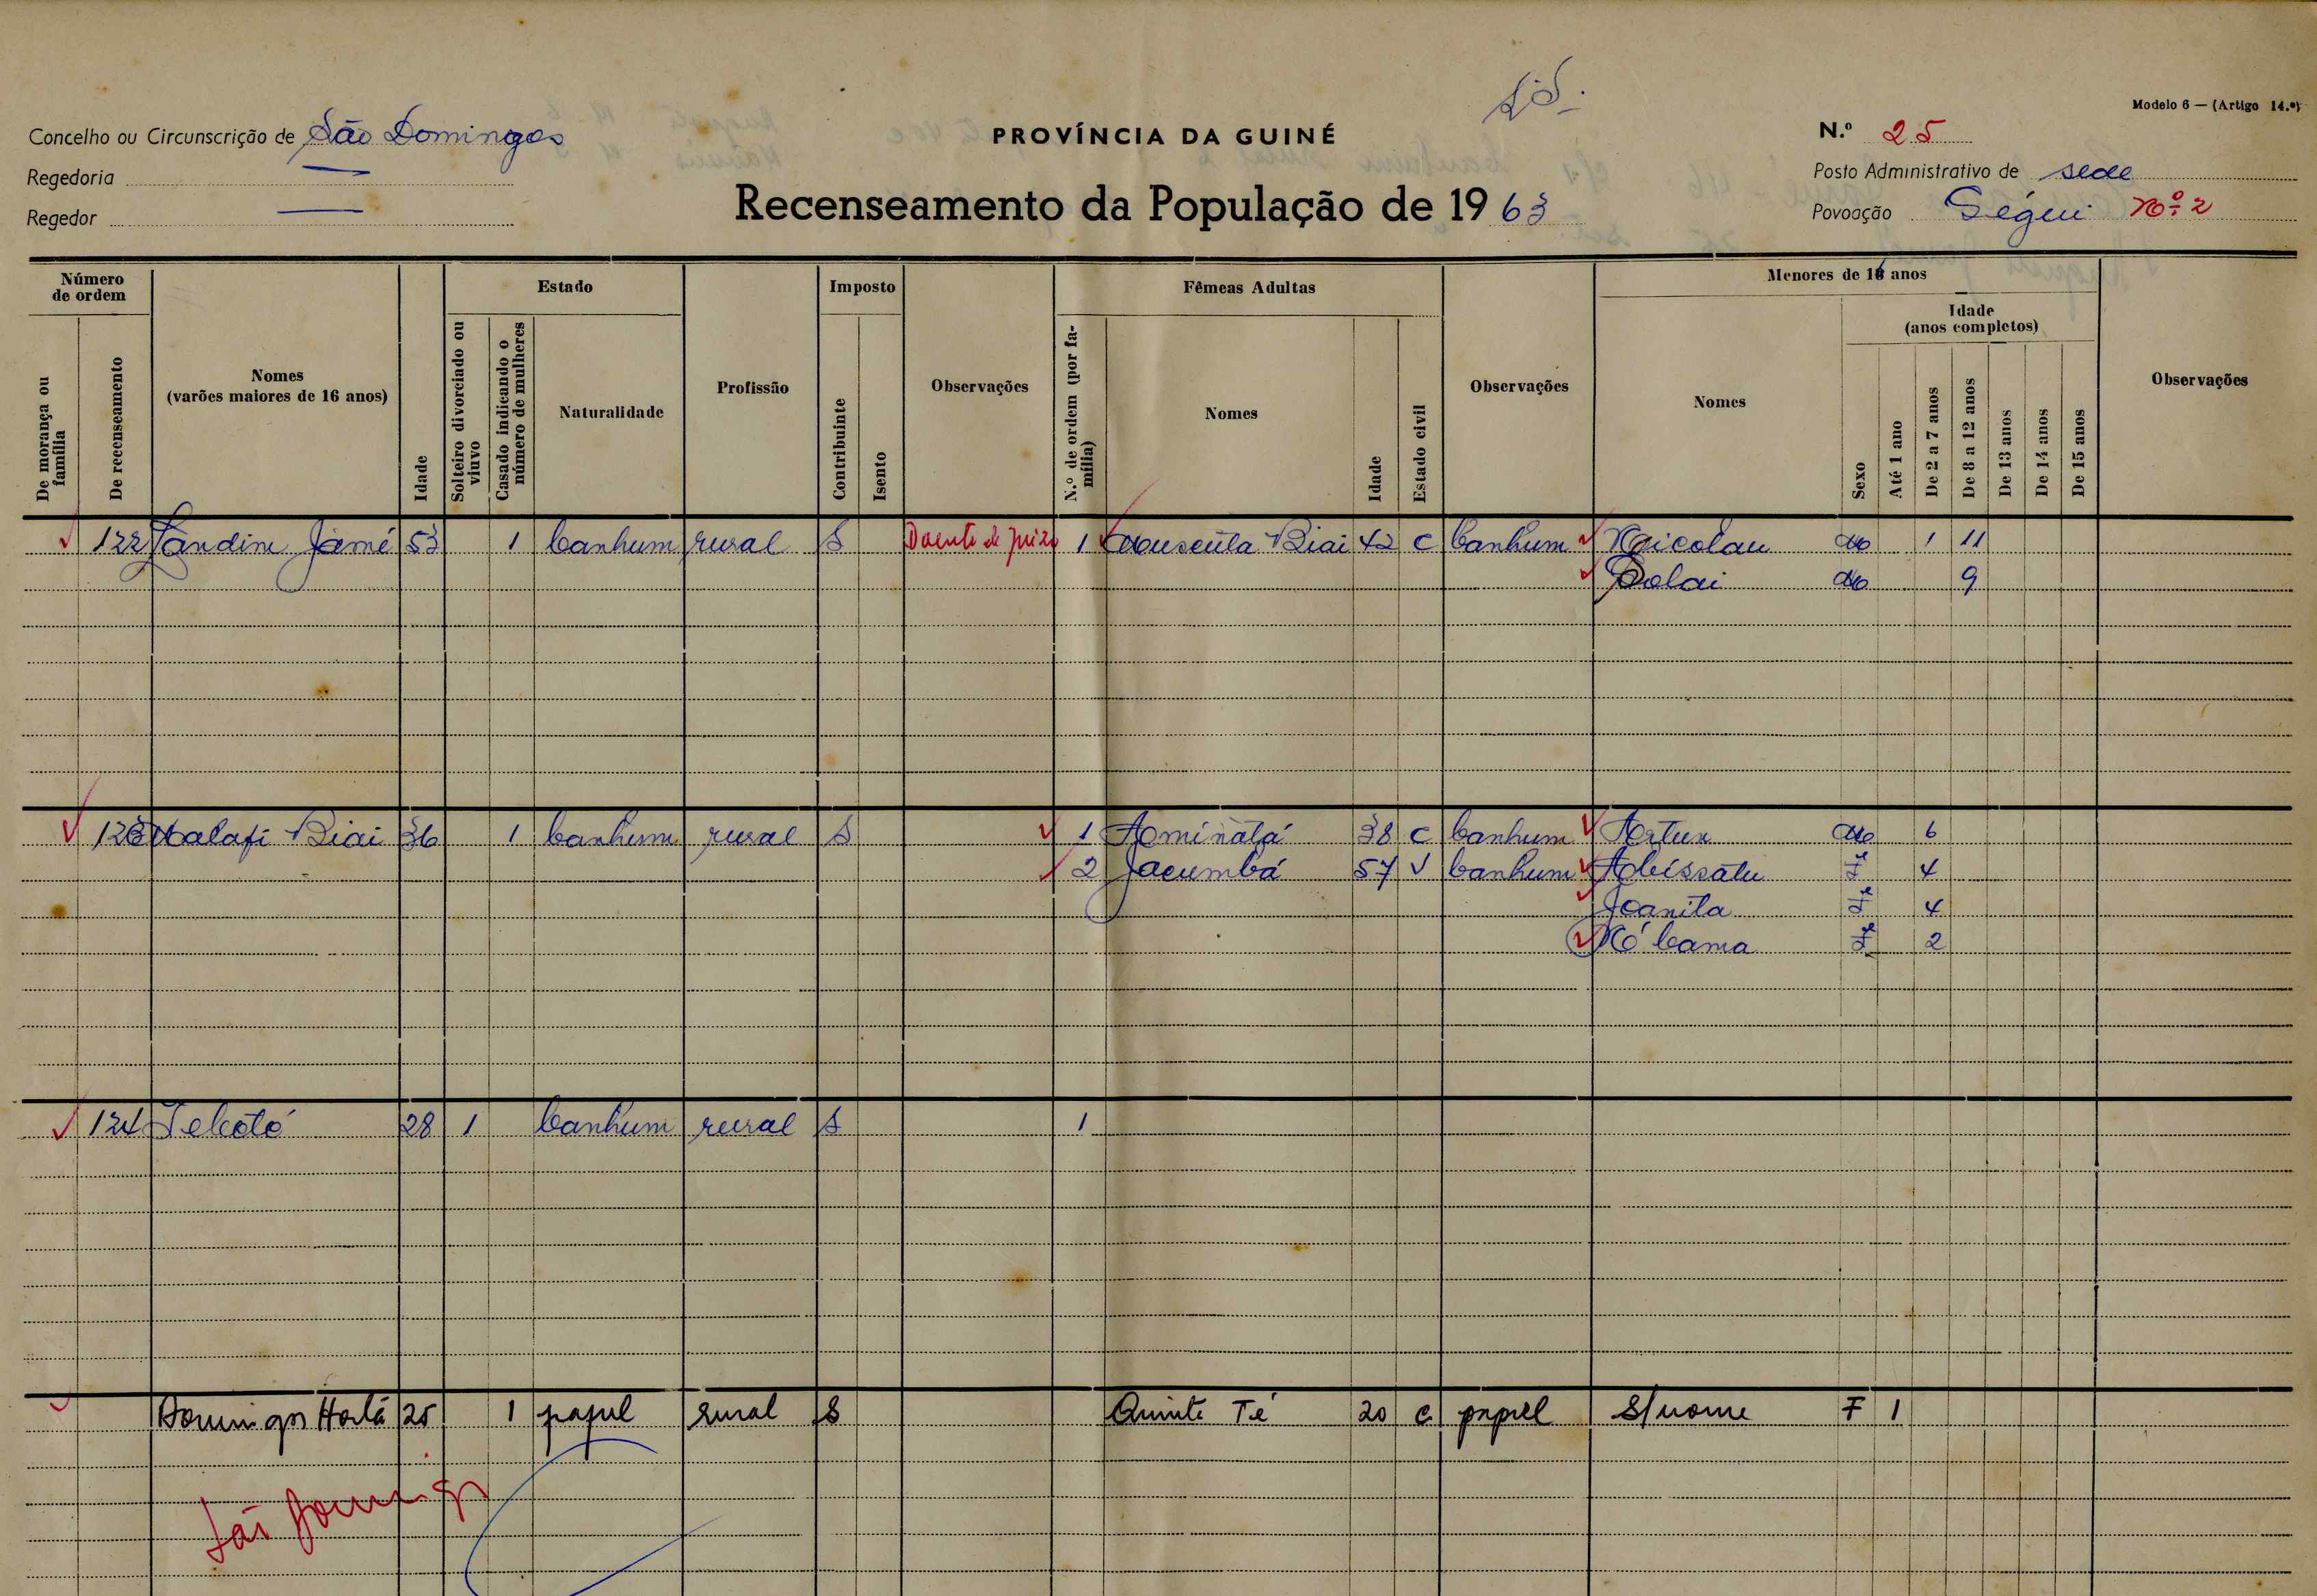 Modelo 6 — (Artigo 14.º)
Concelho ou Circunscrição de São Domingos
PROVÍNCIA DA GUINÉ
N.º 25
Regedoria —
Posto Administrativo de sede
Regedor —
Recenseamento da População de 1963
Povoação Ségui nº 2
Número de ordem
Estado
Imposto
Fêmeas Adultas
Menores de 16 anos
Idade (anos completos)
De morança ou família
De recenseamento
Nomes (varões maiores de 16 anos)
Idade
Solteiro divorciado ou viuvo
Casado indicando o número de mulheres
Naturalidade
Profissão
Contribuinte
Isento
Observações
N.º de ordem (por família)
Nomes
Idade
Estado civil
Observações
Nomes
Sexo
Até 1 ano
De 2 a 7 anos
De 8 a 12 anos
De 13 anos
De 14 anos
De 15 anos
Observações
122 Landim Jamé 53 1 banhum rural S Doente de juizo 1 Biai 42 c banhum Nicolau M 1 11
M 9
123 Malafi Biai 36 1 banhum rural S 1 Aminatá 38 c banhum Artur M 6
2 Jacumbá 57 V banhum Abissatu Fe 4
Joanita Fe 4
Nó bama Fe 2
124 28 1 banhum rural S 1
Domingos Hortá 25 1 papel rural S Quinta Té 20 c papel S/nome F 1
São Domingos